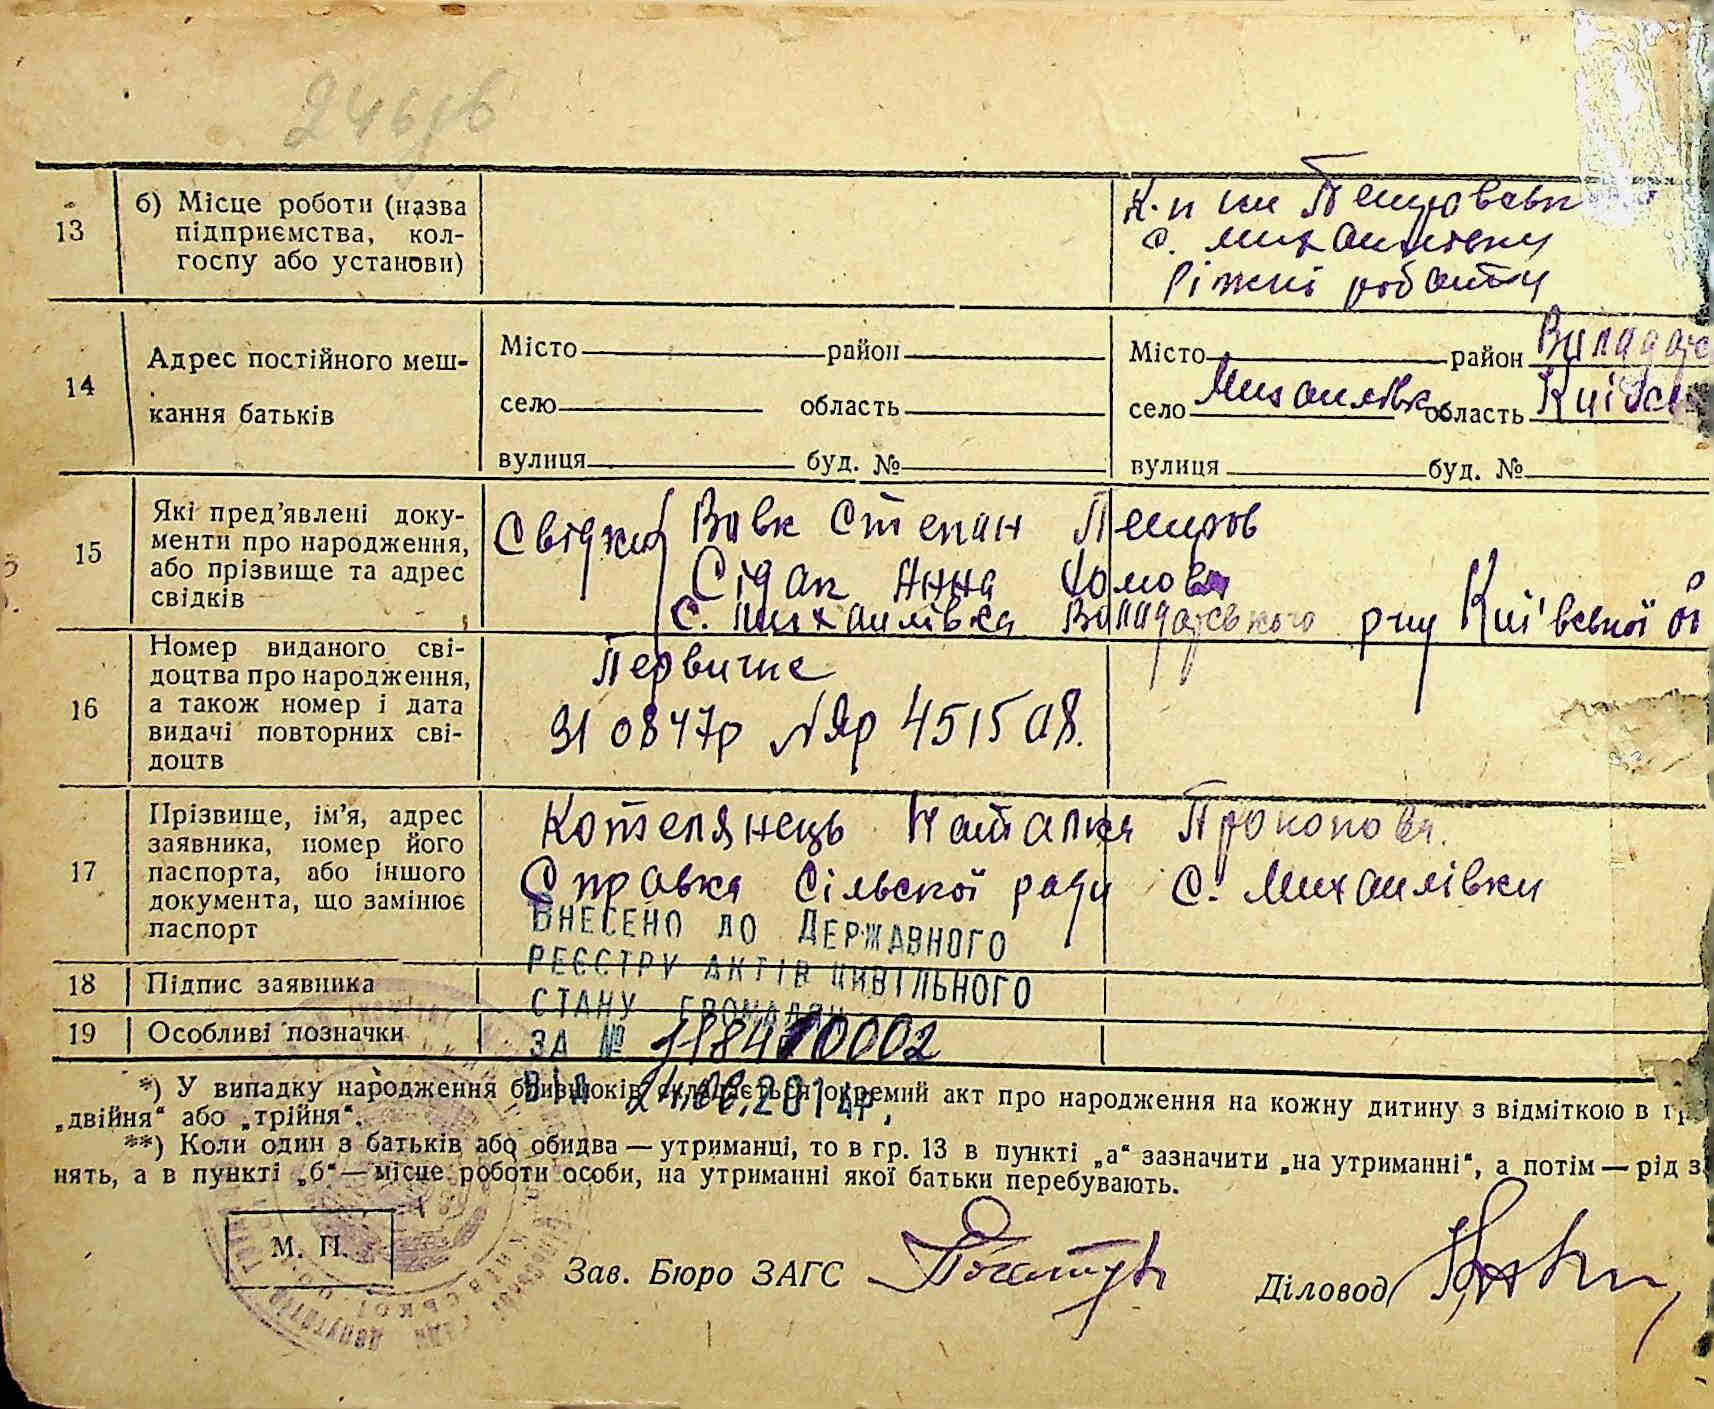 246
13
б) Місце роботи (назва
підприємства, кол-
госпу або установи)
К-п им Петровсь
с. Михайлівки
Ріжні роботи
14
Адрес постійного меш-
кання батьків
Місто район
село область
вулиця буд. №
Місто район Володарс
село Михайлівка область Київсь
вулиця буд. №
15
Які пред'явлені доку-
менти про народження,
або прізвище та адрес
свідків
Свідки Вовк Степан Петров
Сідак Анна Хомова
с. Михайлівка Володарського р-ну Київської о
16
Номер виданого сві-
доцтва про народження,
а також номер і дата
видачі повторних сві-
доцтв
Первичне
31 08 47р № Яр 451508.
17
Прізвище, ім'я, адрес
заявника, номер його
паспорта, або іншого
документа, що замінює
паспорт
Котелянець Наталка Прокопова.
Справка Сільскої ради с. Михайлівки
ВНЕСЕНО ДО ДЕРЖАВНОГО
РЕЄСТРУ АКТІВ ЦИВІЛЬНОГО
СТАНУ ГРОМАДЯН
ЗА №
ВІД 2014р,
18 Підпис заявника
19 Особливі позначки
*) У випадку народження близнюків складається окремий акт про народження на кожну дитину з відміткою в гр.
„двійня“ або „трійня“.
**) Коли один з батьків або обидва — утриманці, то в гр. 13 в пункті „а“ зазначити „на утриманні“, а потім — рід за
нять, а в пункті „б“ — місце роботи особи, на утриманні якої батьки перебувають.
М. П.
Зав. Бюро ЗАГС
Діловод